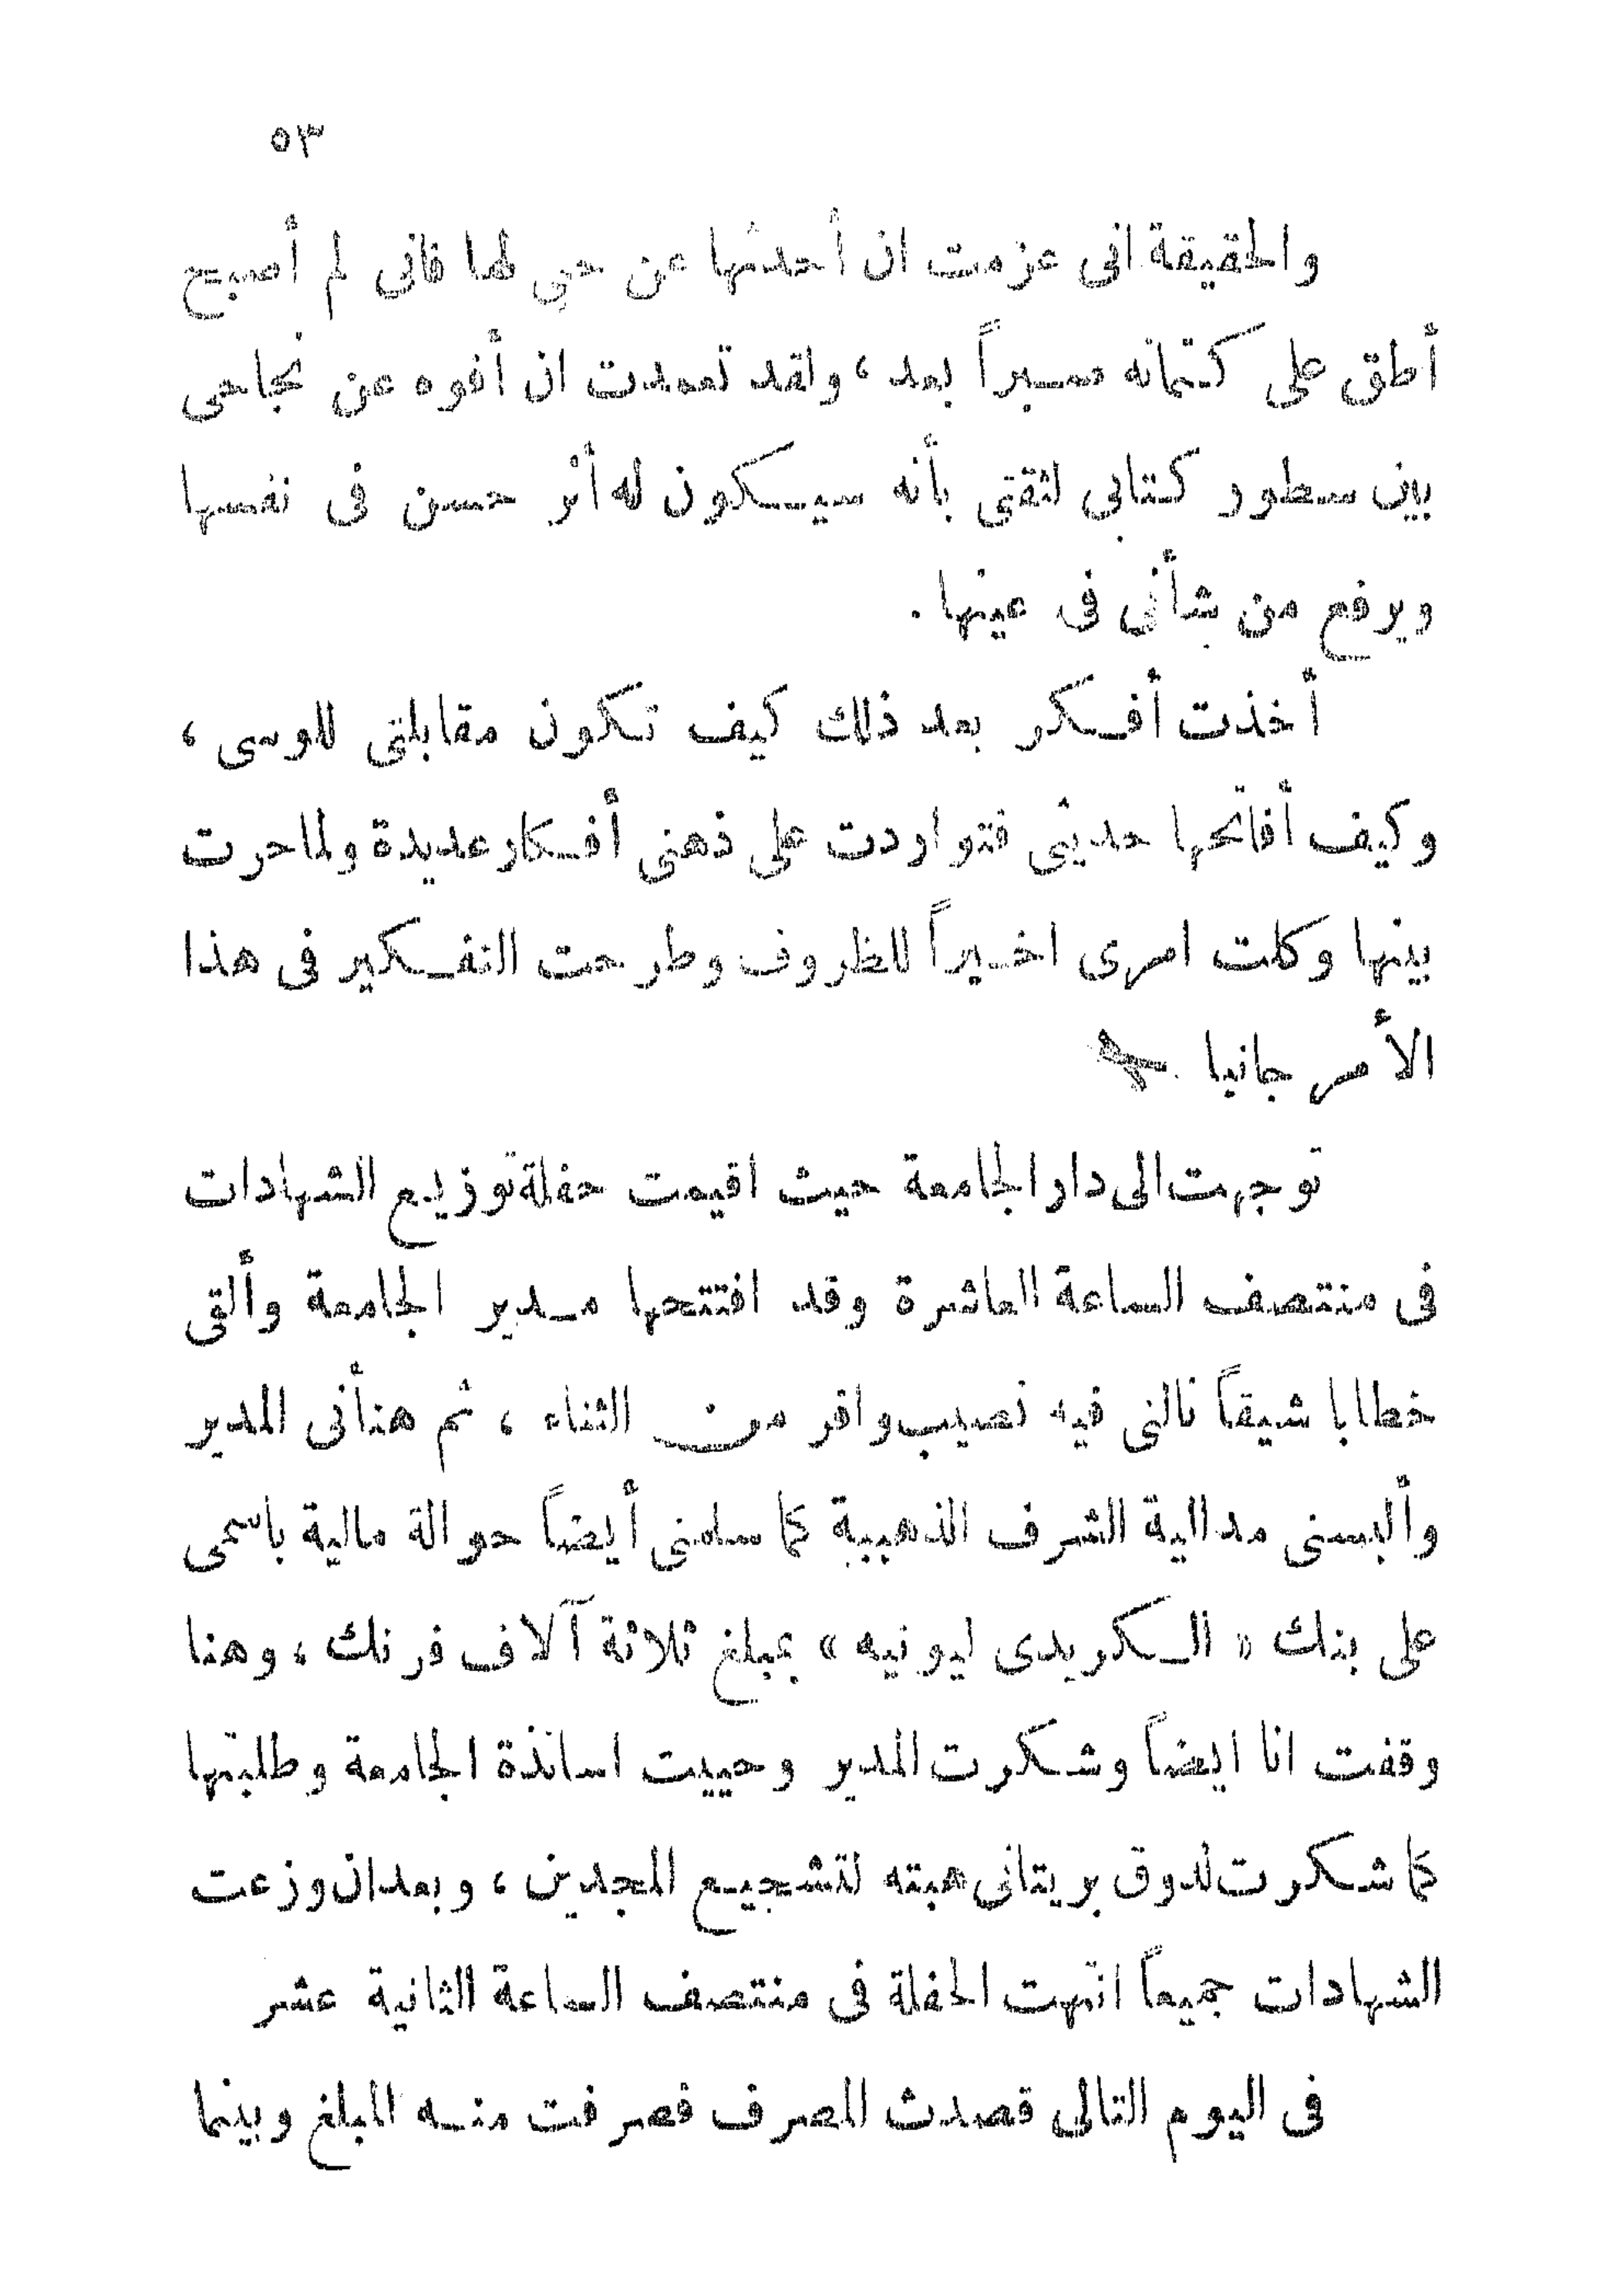 ٥٣
والحقيقة انى عزمت ان أحدثها عن حبي لها فانى لم أصبح
أطق على كتمانه صبراً بعد ، ولقد تعمدت ان أفوه عن نجاحى
بين سطور كتابى لثقتى بأنه سيكون له أثر حسن فى نفسها
ويرفع من شأنى فى عينها .
أخذت أفكر بعد ذلك كيف تكون مقابلتى للوسى ،
وكيف أفاتحها حديثى فتواردت على ذهنى أفكار عديدة ولما حرت
بينها وكلت امرى اخيراً للظروف وطرحت التفكير فى هذا
الأمر جانبا .
توجهت الى دار الجامعة حيث اقيمت حفلة توزيع الشهادات
فى منتصف الساعة العاشرة وقد افتتحها مدير الجامعة وألقى
خطابا شيقاً نالنى فيه نصيب وافر من الثناء ، ثم هنأنى المدير
وألبسنى مدالية الشرف الذهبية كما سلمنى أيضاً حوالة مالية باسمى
على بنك « الكريدى ليونيه » بمبلغ ثلاثة آلاف فرنك ، وهنا
وقفت انا ايضاً وشكرت المدير وحييت اساتذة الجامعة وطلبتها
كما شكرت لدوق بريتانى هبته لتشجيع المجدين ، وبعد ان وزعت
الشهادات جميعاً انتهت الحفلة فى منتصف الساعة الثانية عشر
فى اليوم التالى قصدت المصرف فصرفت منه المبلغ وبينما